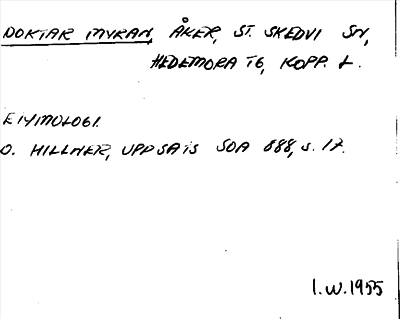 DOKTAR MYRAN, ÅKER, ST. SKEDVI SN,
HEDEMORA TG, KOPP. L.
ETYMOLOGI.
O. HILLNER, UPPSATS SOA 888, s. 17.
I.W. 1955